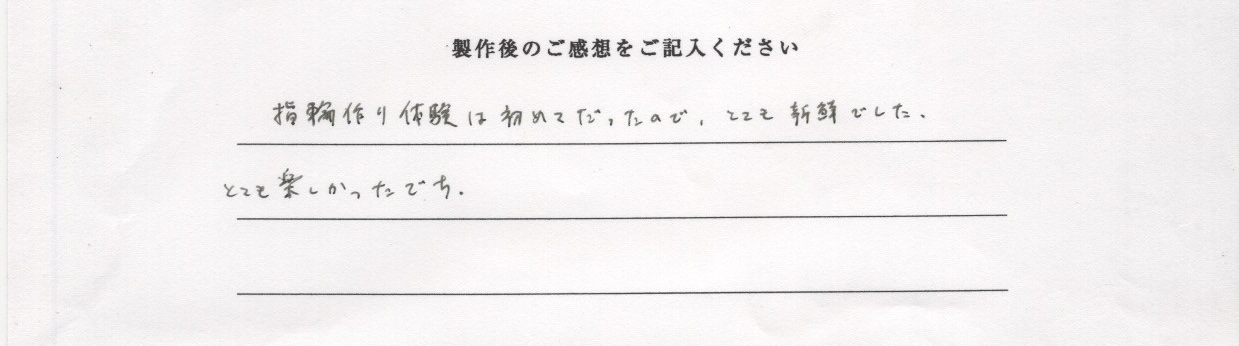 製作後のご感想をご記入ください
指輪作り体験は初めてだったので、とても新鮮でした。
とても楽しかったです。